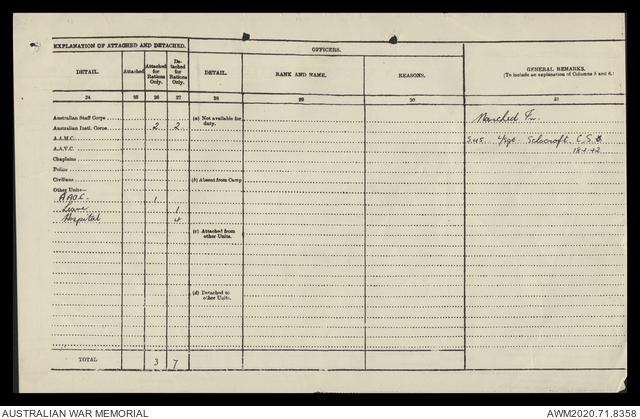 EXPLANATION OF ATTACHED AND DETACHED.
OFFICERS.
DETAIL.
Attached
Attached for Rations Only.
De-tached for Rations Only.
DETAIL.
RANK AND NAME.
REASONS.
GENERAL REMARKS.
(To include an explanation of Columns 5 and 6.)
24 25 26 27 28 29 30 31
Australian Staff Corps
Australian Instl. Corps 2 2
A.A.M.C.
A.A.V.C.
Chaplains
Police
Civilians
Other Units—
AAOC 1
Leave 1
Hospital 4
(a) Not available for duty.
(b) Absent from Camp
(c) Attached from other Units.
(d) Detached to other Units.
Marched In
L/Sgt C.S.
18-1-42
TOTAL 3 7
AUSTRALIAN WAR MEMORIAL
AWM2020.71.8358